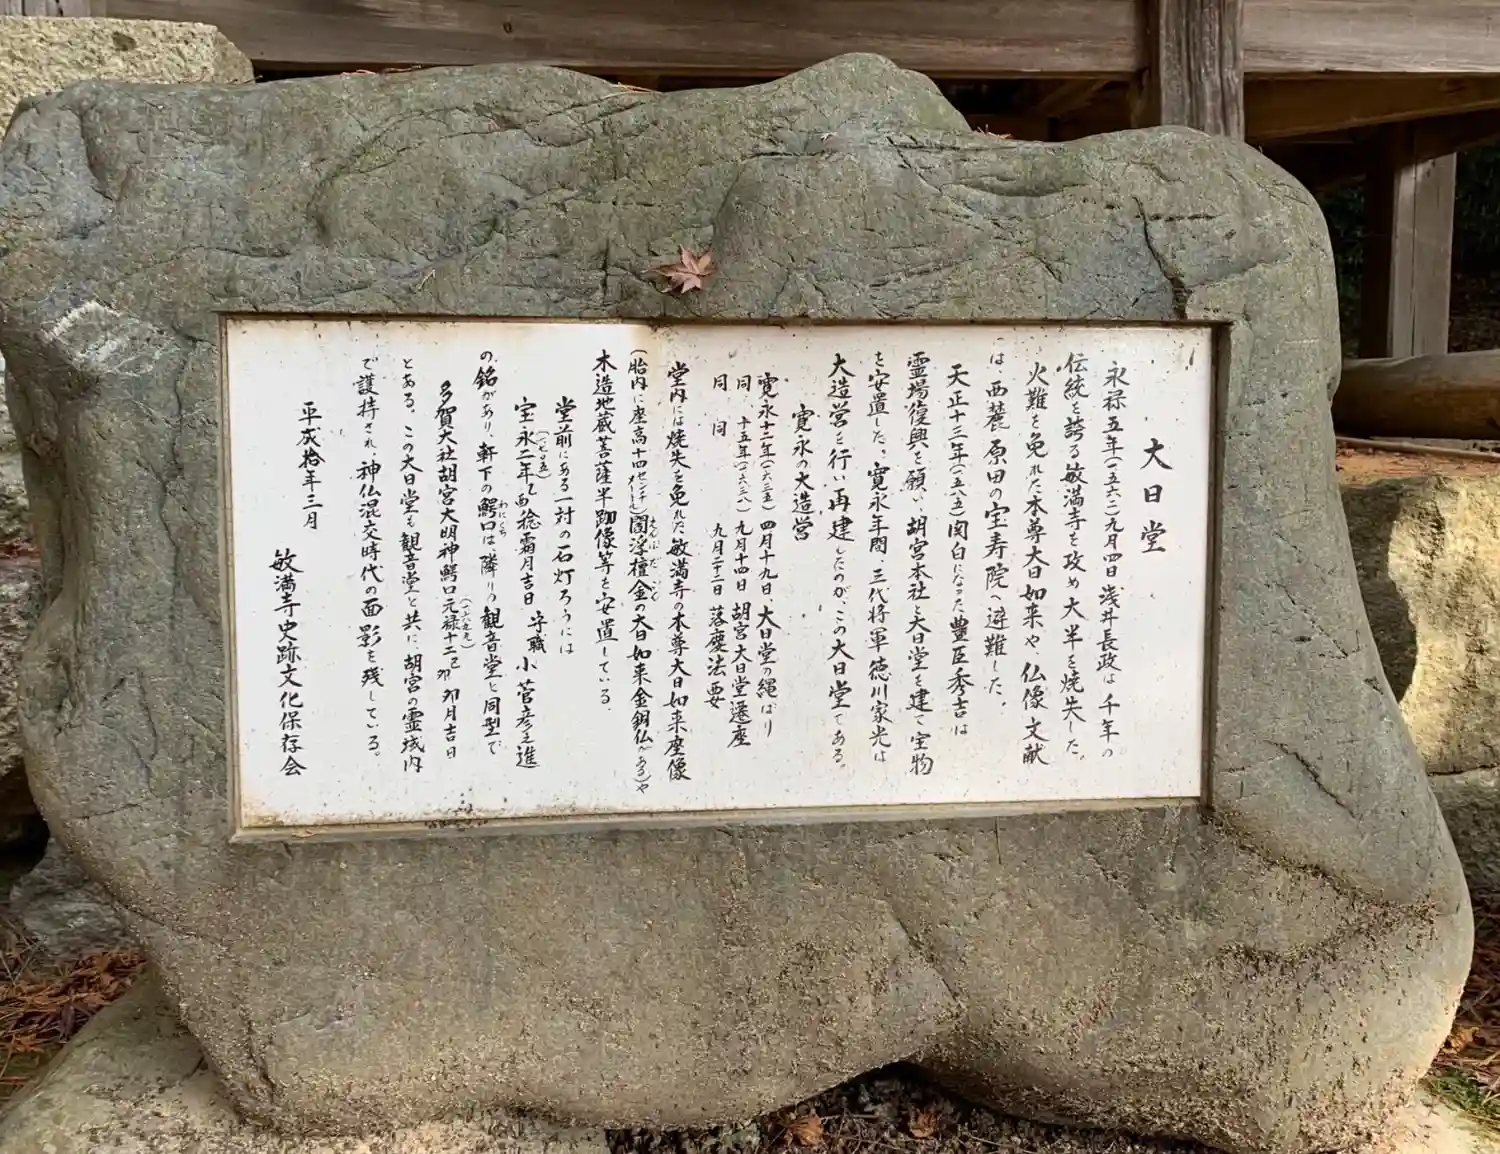 大日堂
永禄五年(一五六二)九月四日浅井長政は千年の
伝統を誇る敏満寺を攻め大半を焼失した。
火難を免れた本尊大日如来や、仏像文献
は、西麓原田の宝寿院へ避難した。
天正十三年(一五八五)関白になった豊臣秀吉は
霊場復興を願い、胡宮本社と大日堂を建て宝物
を安置した。寛永年間、三代将軍徳川家光は
大造営を行い再建したのが、この大日堂である。
寛永の大造営
寛永十二年(一六三五)四月十九日、大日堂の縄ばり
同、十五年(一六三八)九月十四日胡宮大日堂遷座
同 同 九月二十二日落慶法要
堂内には焼失を免れた敏満寺の本尊大日如来座像
(胎内に座高十四センチメートル閻浮檀金の大日如来金銅仏がある)や
えんぶだごん
木造地蔵菩薩半跏像等を安置している。
堂前にある一対の石灯ろうには
宝永二年乙酉稔霜月吉日 守職 小菅彦之進
(一七〇五)
の、銘があり、軒下の鰐口は、隣りの観音堂と同型で
わにぐち
多賀大社胡宮大明神鰐口元禄十二己卯卯月吉日
(一六九九)
とある。この大日堂も観音堂と共に、胡宮の霊域内
で護持され、神仏混交時代の面影を残している。
平成拾年三月
敏満寺史跡文化保存会